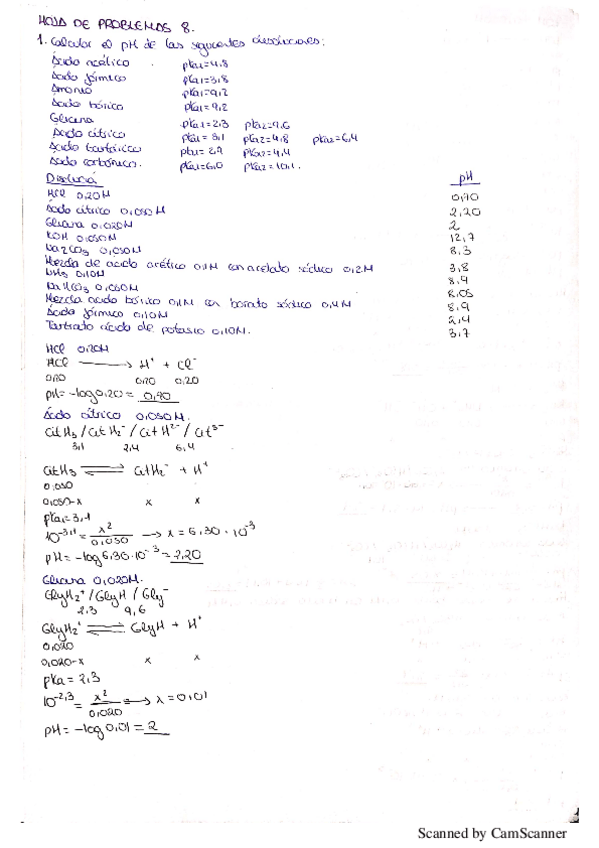 HOJA DE PROBLEMAS 8.
1. Calcular el pH de las siguientes disoluciones:
Ácido acético pKa1=4,8
Ácido fórmico pKa1=3,8
Amonio pKa1=9,2
Ácido bórico pKa1=9,2
Glicina pKa1=2,3 pKa2=9,6
Ácido cítrico pKa1=3,1 pKa2=4,8 pKa3=6,4
Ácido tartárico pKa1=2,9 pKa2=4,4
Ácido carbónico. pKa1=6,0 pKa2=10,1.
Disolución pH
HCl 0,20M 0,70
Ácido cítrico 0,050M 2,20
Glicina 0,020M 2
KOH 0,050M 12,7
Na2CO3 0,050M 8,3
Mezcla de ácido acético 0,1M con acetato sódico 0,2M 3,8
NH3 0,10M 8,9
NaHCO3 0,050M 8,05
Mezcla ácido bórico 0,1M con borato sódico 0,4M 8,9
Ácido fórmico 0,10M 2,4
Tartrato ácido de potasio 0,10M. 3,7
HCl 0,20M
HCl ⟶ H+ + Cl-
0,20 0,20 0,20
pH = -log0,20 = 0,70
Ácido cítrico 0,050M.
CitH3 / CitH2- / CitH2- / Cit3-
3,1 2,4 6,4
CitH3 ⇌ CitH2- + H+
0,050
0,050-x x x
pKa1=3,1
10-3,1 = x2/0,050 → x = 6,30·10-3
pH = -log6,30·10-3 = 2,20
Glicina 0,020M.
GlyH2+ / GlyH / Gly-
2,3 9,6
GlyH2+ ⇌ GlyH + H+
0,020
0,020-x x x
pKa = 2,3
10-2,3 = x2/0,020 → x = 0,01
pH = -log0,01 = 2
Scanned by CamScanner